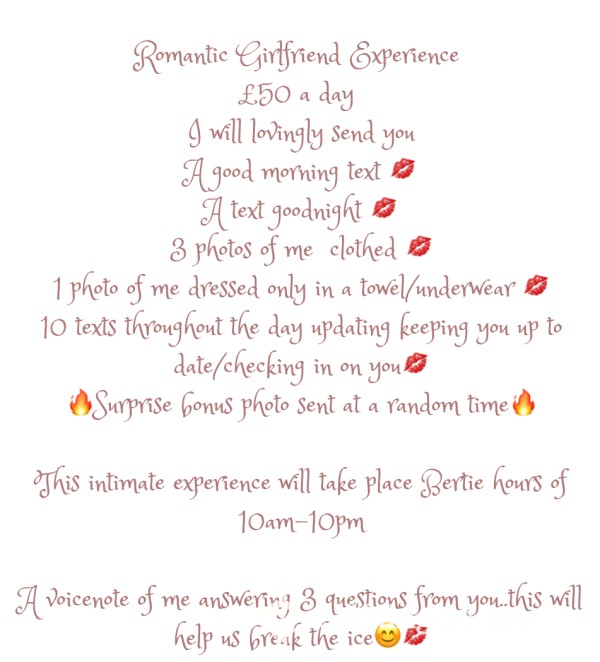 Romantic Girlfriend Experience
£50 a day
I will lovingly send you
A good morning text 💋
A text goodnight 💋
3 photos of me clothed 💋
1 photo of me dressed only in a towel/underwear 💋
10 texts throughout the day updating keeping you up to
date/checking in on you💋
🔥Surprise bonus photo sent at a random time🔥
This intimate experience will take place Bertie hours of
10am-10pm
A voicenote of me answering 3 questions from you..this will
help us break the ice😊💋